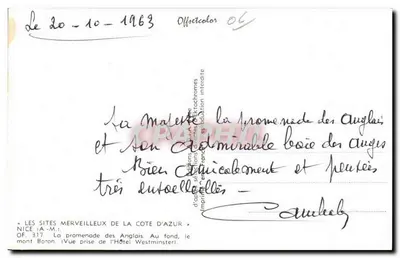 Le 20-10-1963
Offsetcolor
06
Sa majesté la promenade des Anglais
et son admirable baie des anges
Bien amicalement et pensées
très
" LES SITES MERVEILLEUX DE LA COTE D'AZUR "
NICE (A.-M.)
OF. 317. La promenade des Anglais. Au fond, le
mont Boron. (Vue prise de l'Hôtel Westminster).